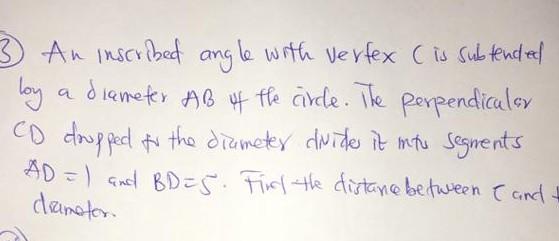 3) An inscribed angle with vertex C is subtended
by a diameter AB of the circle. The perpendicular
CD dropped to the diameter divides it into segments
AD = 1 and BD = 5. Find the distance between C and
diameter.